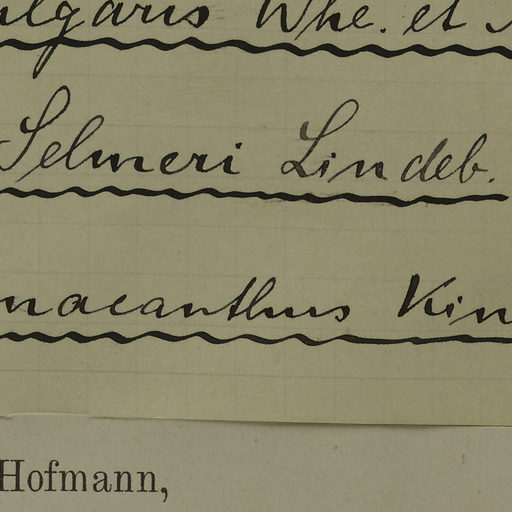 ulgaris Whe. et
Selmeri Lindeb.
nacanthus Kin
Hofmann,